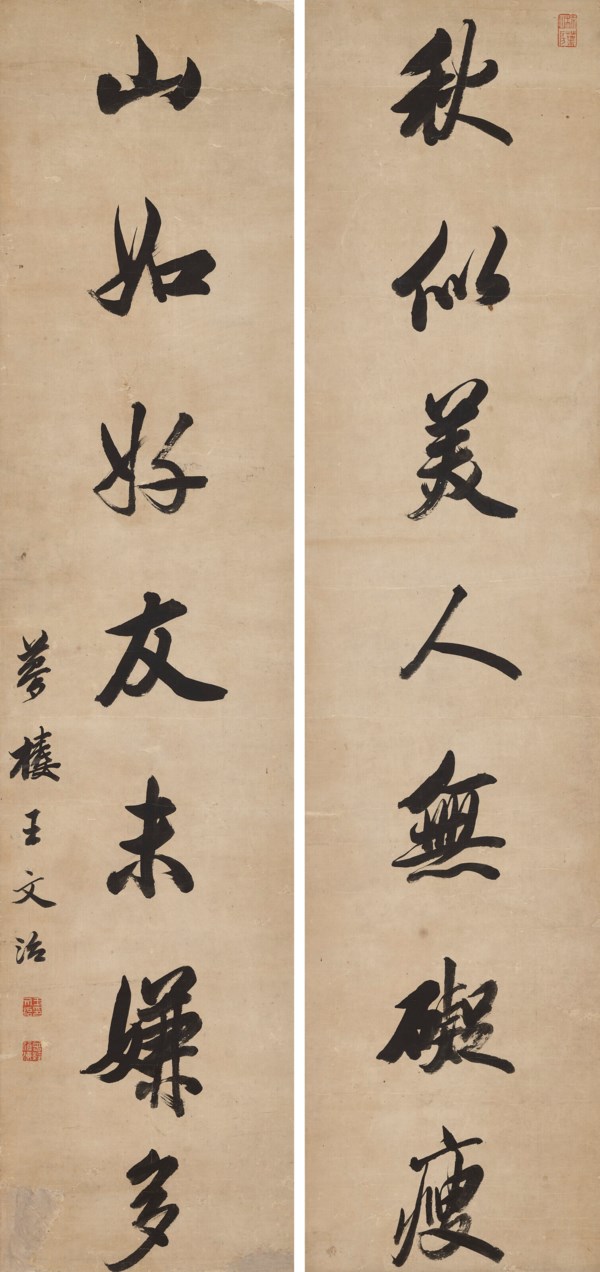 秋似美人無礙瘦
山如好友未嫌多
夢樓王文治